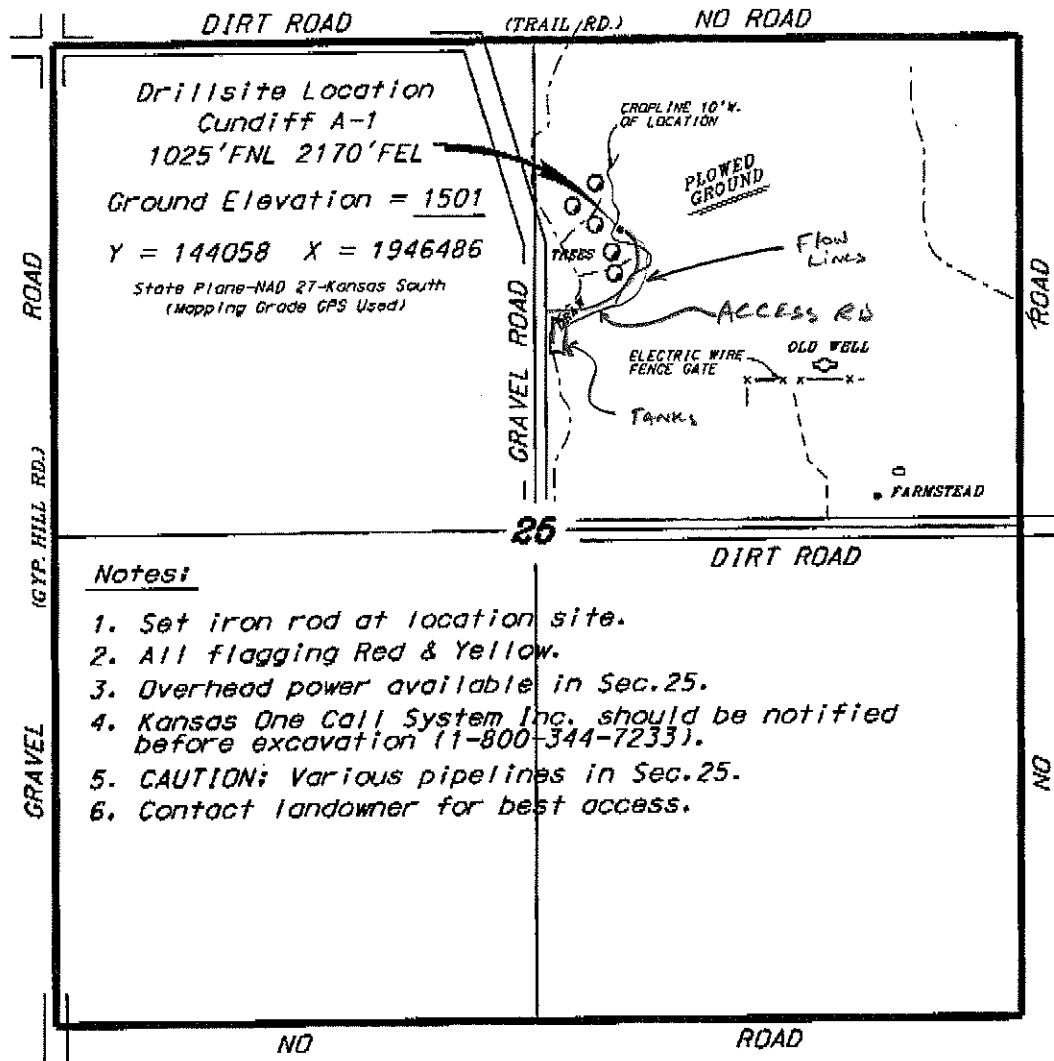 DIRT ROAD
(TRAIL/RD.)
NO ROAD
Drillsite Location
Cundiff A-1
1025'FNL 2170'FEL
Ground Elevation = 1501
Y = 144058 X = 1946486
State Plane-NAD 27-Kansas South
(Mapping Grade GPS Used)
CROPLINE 10'W.
OF LOCATION
PLOWED
GROUND
TREES
FLOW
LINES
ACCESS RD
ELECTRIC WIRE
FENCE GATE
OLD WELL
TANKS
FARMSTEAD
GRAVEL ROAD
ROAD
(GYP. HILL RD.)
GRAVEL
ROAD
NO
25
DIRT ROAD
Notes:
1. Set iron rod at location site.
2. All flagging Red & Yellow.
3. Overhead power available in Sec.25.
4. Kansas One Call System Inc. should be notified
before excavation (1-800-344-7233).
5. CAUTION: Various pipelines in Sec.25.
6. Contact landowner for best access.
NO
ROAD